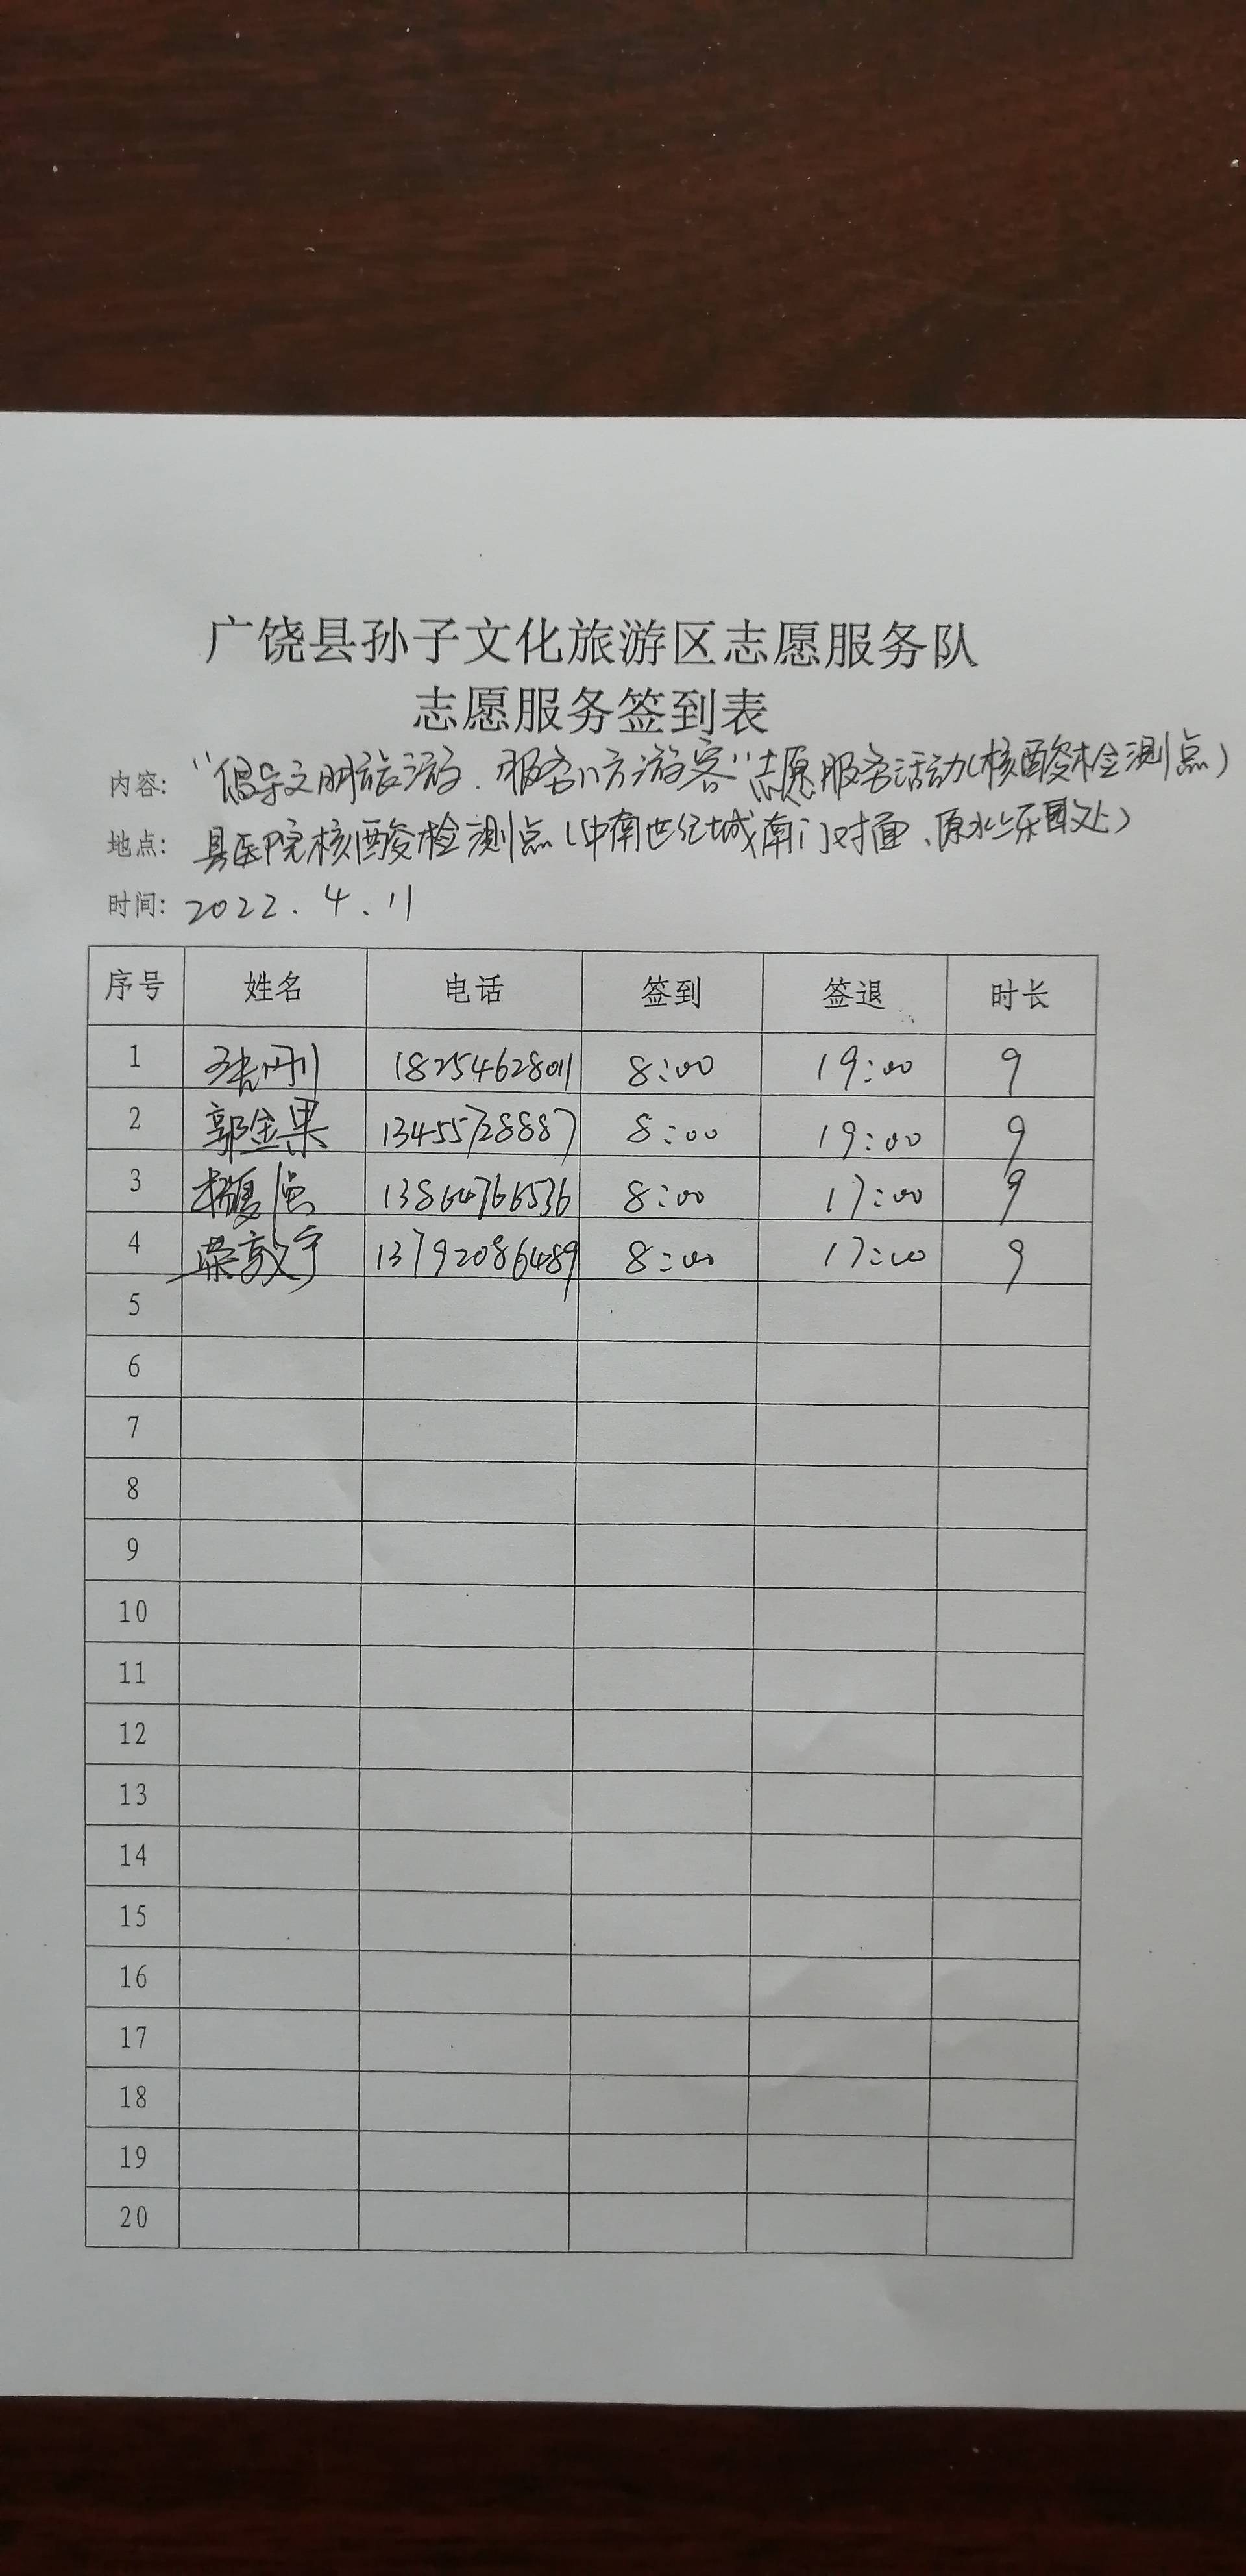 广饶县孙子文化旅游区志愿服务队
志愿服务签到表
内容: "倡导文明旅游.服务八方游客"志愿服务活动(核酸检测点)
地点: 县医院核酸检测点(中南世纪城南门对面、原水上乐园处)
时间: 2022.4.11
序号 姓名 电话 签到 签退 时长
1 18254628011 8:00 19:00 9
2 郭金果 13455728887 8:00 19:00 9
3 13864766536 8:00 17:00 9
4 荣敦宇 13792086489 8:00 17:00 9
5
6
7
8
9
10
11
12
13
14
15
16
17
18
19
20